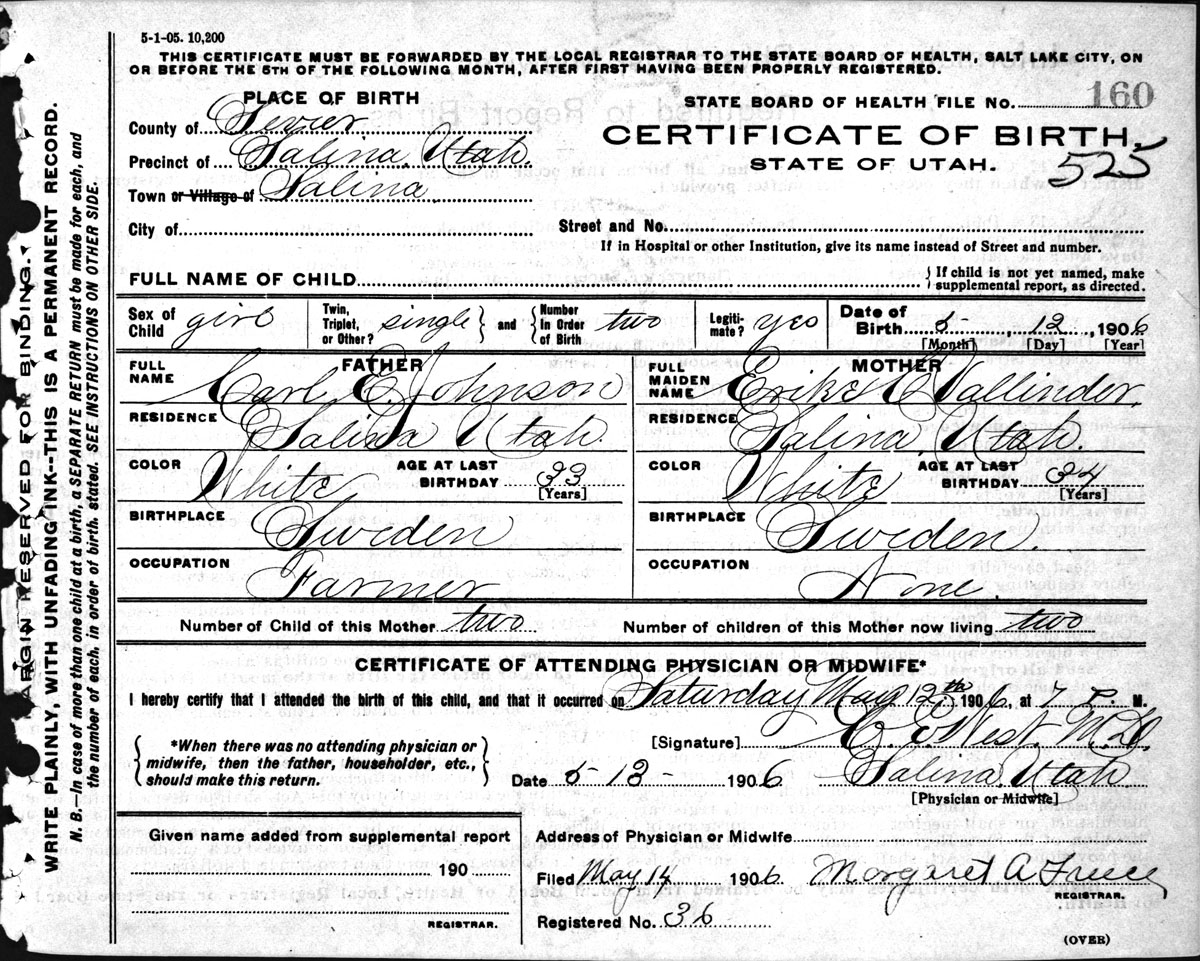 5-1-05. 10,200
THIS CERTIFICATE MUST BE FORWARDED BY THE LOCAL REGISTRAR TO THE STATE BOARD OF HEALTH, SALT LAKE CITY, ON
OR BEFORE THE 5TH OF THE FOLLOWING MONTH, AFTER FIRST HAVING BEEN PROPERLY REGISTERED.
PLACE OF BIRTH
STATE BOARD OF HEALTH FILE No. 160
County of Sevier
CERTIFICATE OF BIRTH.
Precinct of Salina Utah.
STATE OF UTAH. 525
Town or Village of Salina
City of
Street and No.
If in Hospital or other Institution, give its name instead of Street and number.
FULL NAME OF CHILD
If child is not yet named, make
supplemental report, as directed.
Sex of Child girl
Twin, Triplet, or Other? single
and Number In Order of Birth two
Legitimate? yes
Date of Birth 5 12, 1906
[Month] [Day] [Year]
FATHER
FULL NAME Carl E. Johnson
RESIDENCE Salina Utah.
COLOR White
AGE AT LAST BIRTHDAY 33
[Years]
BIRTHPLACE Sweden
OCCUPATION Farmer
MOTHER
FULL MAIDEN NAME Erike C Vallinder.
RESIDENCE Salina, Utah.
COLOR White
AGE AT LAST BIRTHDAY 34
[Years]
BIRTHPLACE Sweden.
OCCUPATION None.
Number of Child of this Mother two
Number of children of this Mother now living two
CERTIFICATE OF ATTENDING PHYSICIAN OR MIDWIFE*
I hereby certify that I attended the birth of this child, and that it occurred on Saturday May 12th 1906, at 7 P. M.
*When there was no attending physician or
midwife, then the father, householder, etc.,
should make this return.
[Signature] E. E West. M.D.
Date 5-13- 1906
Salina, Utah
[Physician or Midwife]
Given name added from supplemental report
190
REGISTRAR.
Address of Physician or Midwife
Filed May 14 1906
Margaret A
REGISTRAR.
Registered No. 36
(OVER)
MARGIN RESERVED FOR BINDING.
WRITE PLAINLY, WITH UNFADING INK--THIS IS A PERMANENT RECORD.
N. B.—In case of more than one child at a birth, a SEPARATE RETURN must be made for each, and
the number of each, in order of birth, stated. SEE INSTRUCTIONS ON OTHER SIDE.